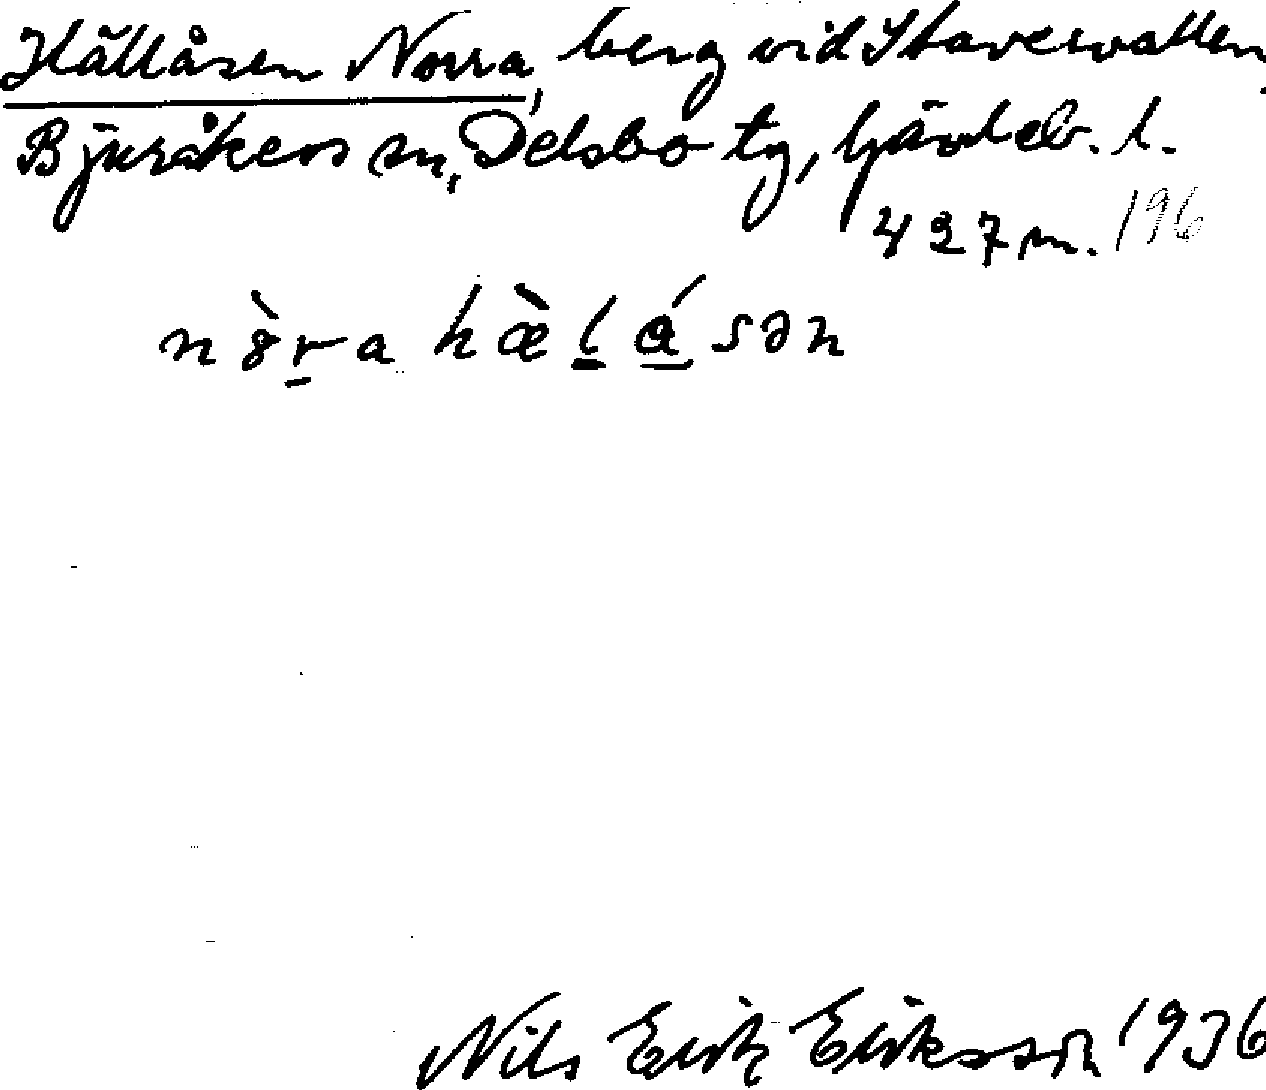 Hällåsen Norra, berg vid Stavervallen,
Bjuråkers sn, Delsbo tg, Gävleb. l.
427 m. 196
nò̀r̠a hæ̀l̠ásən
Nils Erik Eriksson 1936